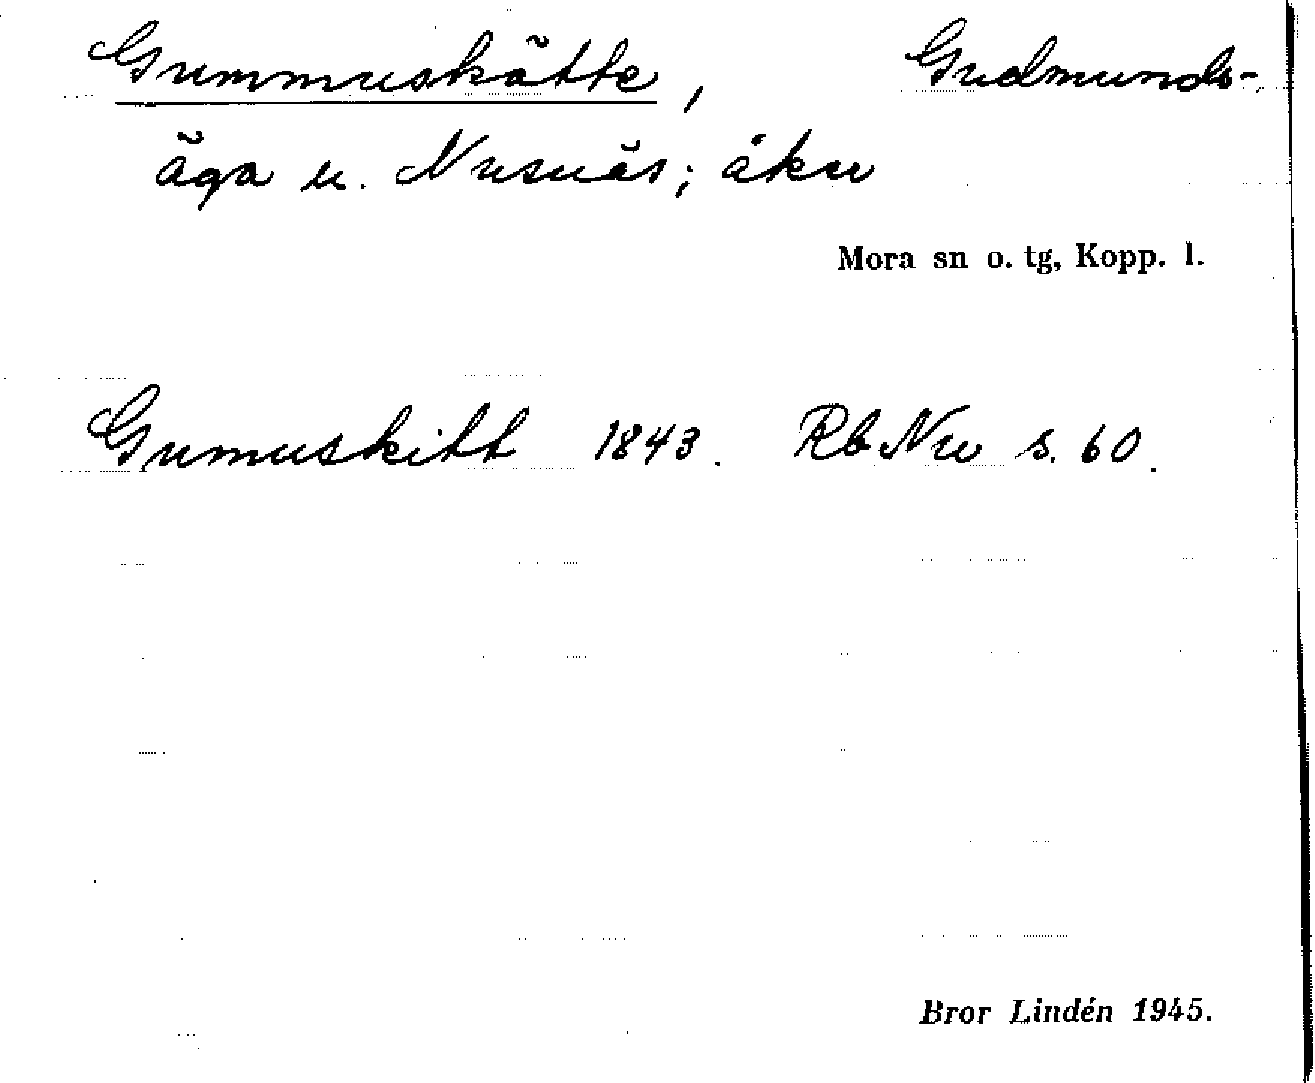 Gummuskätte, Gudmunds-
äga u. Nusnäs; åker
Mora sn o. tg, Kopp. l.
Gumuskitt 1843. Rb Nu s. 60.
Bror Lindén 1945.